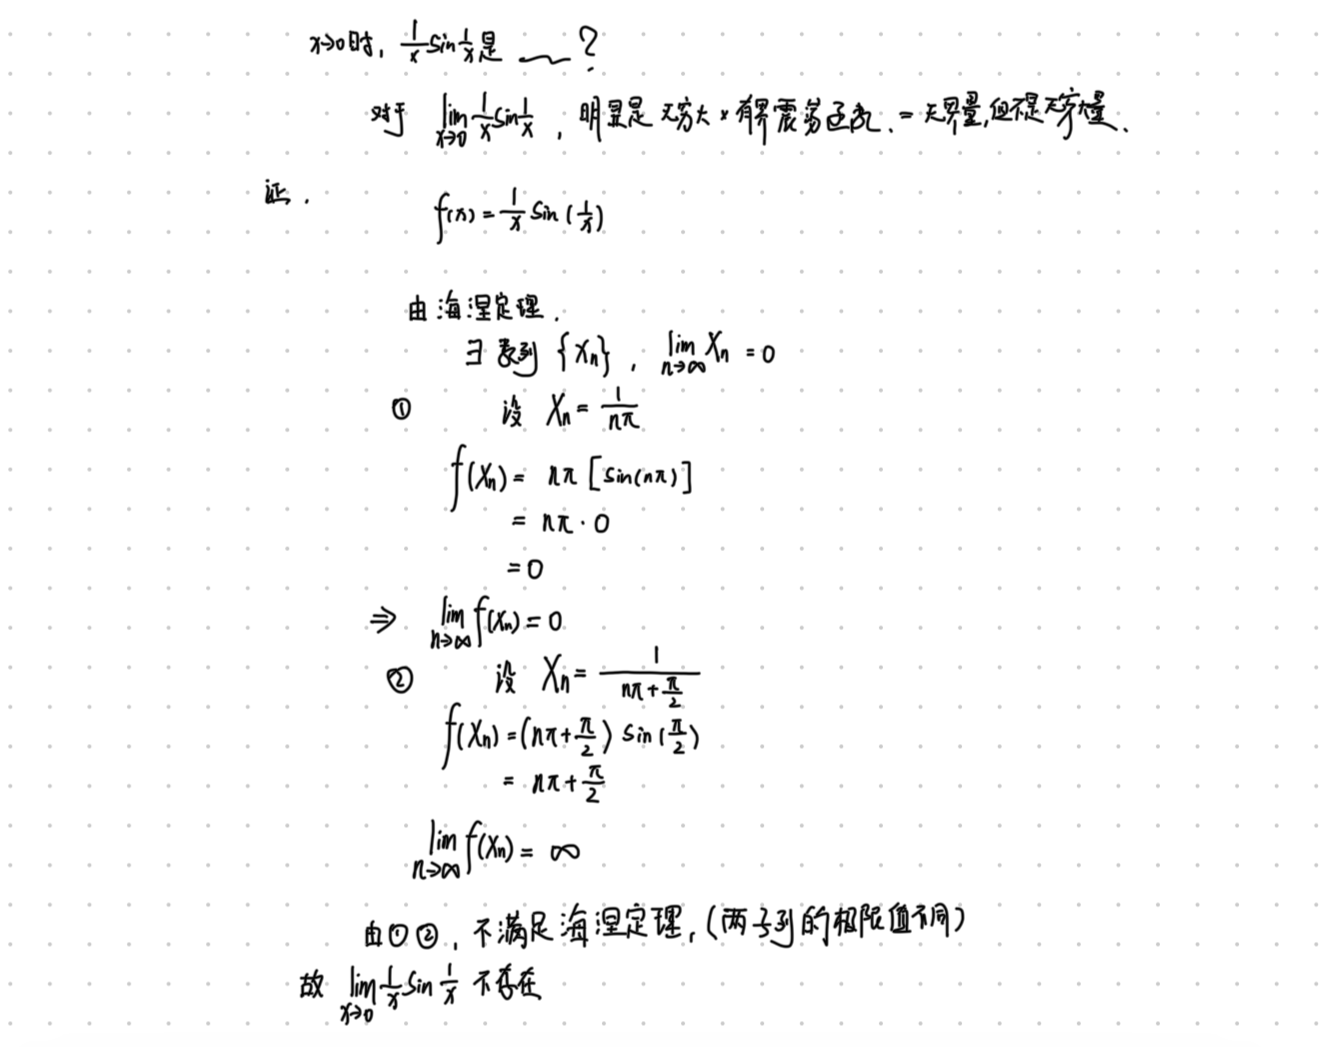 x→0时, 1/x sin 1/x 是 ___ ?
对于 lim x→0 1/x sin 1/x , 明显是 无穷大 × 有界震荡函数. = 无界量, 但不是无穷大量.
证.
f(x) = 1/x sin (1/x)
由海涅定理.
∃ 数列 {Xn} , lim n→∞ Xn = 0
① 设 Xn = 1/nπ
f(Xn) = nπ [sin(nπ)]
= nπ · 0
= 0
⇒ lim n→∞ f(Xn) = 0
② 设 Xn = 1/(nπ + π/2)
f(Xn) = (nπ + π/2) sin (π/2)
= nπ + π/2
lim n→∞ f(Xn) = ∞
由①②, 不满足海涅定理, (两子列的极限值不同)
故 lim x→0 1/x sin 1/x 不存在